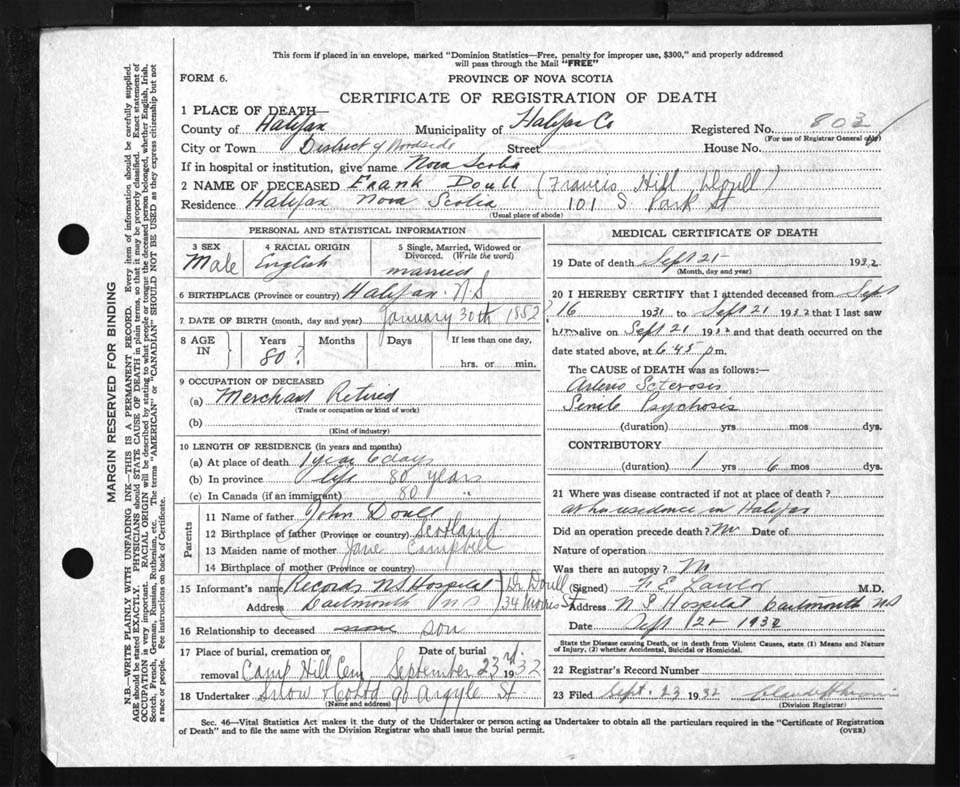 This form if placed in an envelope, marked "Dominion Statistics—Free, penalty for improper use, $300," and properly addressed
will pass through the Mail "FREE"
FORM 6.
PROVINCE OF NOVA SCOTIA
CERTIFICATE OF REGISTRATION OF DEATH
1 PLACE OF DEATH—
County of Halifax Municipality of Halifax Co Registered No. 803
(For use of Registrar General only)
City or Town District of Woodside Street House No.
If in hospital or institution, give name Nova Scotia
2 NAME OF DECEASED Frank Doull (Francis Hill Doull)
Residence Halifax Nova Scotia 101 S. Park St
(Usual place of abode)
PERSONAL AND STATISTICAL INFORMATION
3 SEX 4 RACIAL ORIGIN 5 Single, Married, Widowed or
Divorced. (Write the word)
Male English married
6 BIRTHPLACE (Province or country) Halifax N S
7 DATE OF BIRTH (month, day and year) January 30th 1852
8 AGE IN Years Months Days If less than one day,
80? hrs. or min.
9 OCCUPATION OF DECEASED
(a) Merchant Retired
(Trade or occupation or kind of work)
(b)
(Kind of industry)
10 LENGTH OF RESIDENCE (in years and months)
(a) At place of death 1 year 6 days
(b) In province life 80 years
(c) In Canada (if an immigrant) 80 "
Parents
11 Name of father John Doull
12 Birthplace of father (Province or country) Scotland
13 Maiden name of mother Jane Campbell
14 Birthplace of mother ( " " )
15 Informant's name (Records NS Hospital) Dr Doull
Address Dartmouth NS 34 Morris St
16 Relationship to deceased none son
17 Place of burial, cremation or Date of burial
removal Camp Hill Cem September 23rd 1932
18 Undertaker Snow & Co Ltd 90 Argyle St
(Name and address)
MEDICAL CERTIFICATE OF DEATH
19 Date of death Sept 21 1932
(Month, day and year)
20 I HEREBY CERTIFY that I attended deceased from Sept
16 1931 to Sept 21 1932 that I last saw
him alive on Sept 21 1932 and that death occurred on the
date stated above, at 6.45 p m.
The CAUSE of DEATH was as follows:—
Arterio Sclerosis
Senile Psychosis
(duration) yrs mos dys.
CONTRIBUTORY
(duration) 1 yrs 6 mos dys.
21 Where was disease contracted if not at place of death?
at his residence in Halifax
Did an operation precede death? No Date of
Nature of operation
Was there an autopsy? No
(Signed) F E Lawlor M.D.
Address N S Hospital Dartmouth NS
Date Sept 1932
State the Disease causing Death, or in death from Violent Causes, state (1) Means and Nature
of Injury, (2) whether Accidental, Suicidal or Homicidal.
22 Registrar's Record Number
23 Filed Sept. 23 1932
(Division Registrar)
Sec. 46—Vital Statistics Act makes it the duty of the Undertaker or person acting as Undertaker to obtain all the particulars required in the "Certificate of Registration
of Death" and to file the same with the Division Registrar who shall issue the burial permit.
(OVER)
MARGIN RESERVED FOR BINDING
N.B.—WRITE PLAINLY WITH UNFADING INK—THIS IS A PERMANENT RECORD. Every item of information should be carefully supplied.
AGE should be stated EXACTLY. PHYSICIANS should STATE CAUSE OF DEATH in plain terms, so that it may be properly classified. Exact statement of
OCCUPATION is very important. RACIAL ORIGIN will be described by stating to what people or tongue the deceased person belonged, whether English, Irish,
Scotch, French, German, Russian, Ruthenian, etc. The terms "AMERICAN" or "CANADIAN" SHOULD NOT BE USED as they express citizenship but not
a race or people. Fee instructions on back of Certificate.